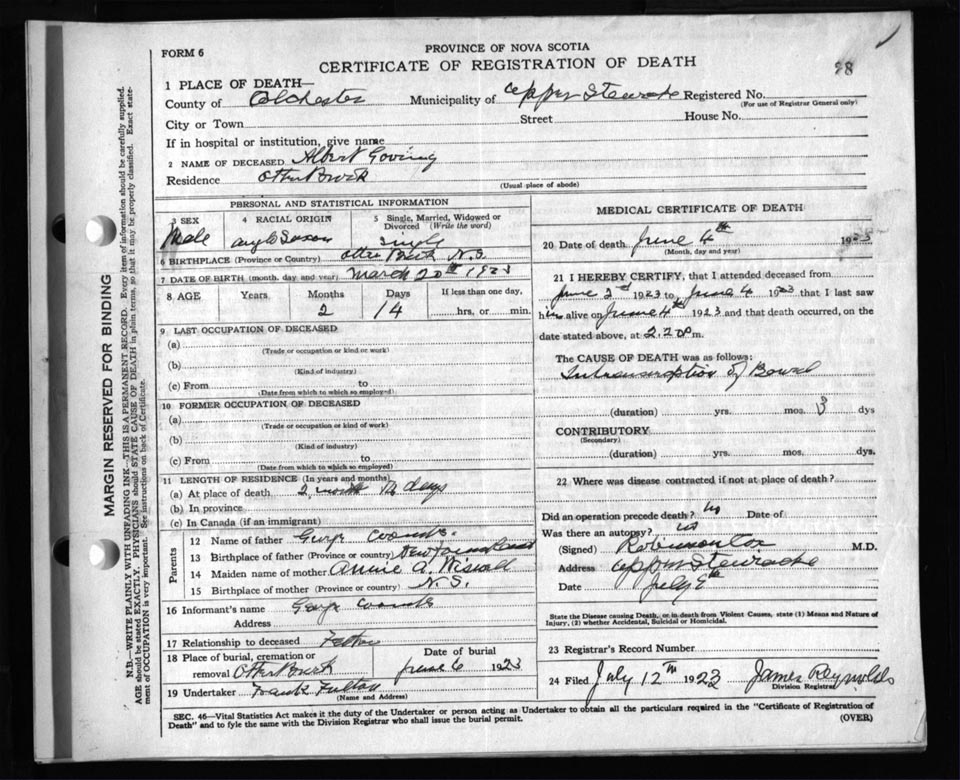 FORM 6
PROVINCE OF NOVA SCOTIA
CERTIFICATE OF REGISTRATION OF DEATH
98
1 PLACE OF DEATH—
County of Colchester Municipality of Upper Stewiacke Registered No.
(For use of Registrar General only)
City or Town Street House No.
If in hospital or institution, give name
2 NAME OF DECEASED Albert
Residence Otter Brook
(Usual place of abode)
PERSONAL AND STATISTICAL INFORMATION
3 SEX 4 RACIAL ORIGIN 5 Single, Married, Widowed or Divorced (Write the word)
Male anglo Saxon single
6 BIRTHPLACE (Province or Country) Otter Brook N.S.
7 DATE OF BIRTH (month, day and year) March 20th 1923
8 AGE Years Months Days If less than one day,
2 14 hrs. or min.
9 LAST OCCUPATION OF DECEASED
(a)
(Trade or occupation or kind or work)
(b)
(Kind of industry)
(c) From to
(Date from which to which so employed)
10 FORMER OCCUPATION OF DECEASED
(a)
(Trade or occupation or kind of work)
(b)
(Kind of industry)
(c) From to
(Date from which to which so employed)
11 LENGTH OF RESIDENCE (In years and months)
(a) At place of death 2 months 14 days
(b) In province
(c) In Canada (if an immigrant)
Parents
12 Name of father George
13 Birthplace of father (Province or country) Newfoundland
14 Maiden name of mother Annie A.
15 Birthplace of mother (Province or country) N.S.
16 Informant's name George
Address
17 Relationship to deceased Father
18 Place of burial, cremation or removal Otter Brook Date of burial June 6 1923
19 Undertaker Frank Fulton
(Name and Address)
MEDICAL CERTIFICATE OF DEATH
20 Date of death June 4th 1923
(Month, day and year)
21 I HEREBY CERTIFY, that I attended deceased from
June 2nd 1923 to June 4 1923 that I last saw
him alive on June 4th 1923 and that death occurred, on the
date stated above, at 2.20 m.
The CAUSE OF DEATH was as follows:
Intussusception of Bowel
(duration) yrs. mos. 3 dys
CONTRIBUTORY
(Secondary)
(duration) yrs. mos. dys.
22 Where was disease contracted if not at place of death?
Did an operation precede death? No Date of
Was there an autopsy? no
(Signed) Robinson Cox M.D.
Address Upper Stewiacke
Date July
State the Disease causing Death, or in death from Violent Causes, state (1) Means and Nature of
Injury, (2) whether Accidental, Suicidal or Homicidal.
23 Registrar's Record Number
24 Filed July 12th 1923 James Reynolds
Division Registrar
SEC. 46—Vital Statistics Act makes it the duty of the Undertaker or person acting as Undertaker to obtain all the particulars required in the "Certificate of Registration of
Death" and to fyle the same with the Division Registrar who shall issue the burial permit.
(OVER)
MARGIN RESERVED FOR BINDING
N.B.—WRITE PLAINLY WITH UNFADING INK—THIS IS A PERMANENT RECORD. Every item of information should be carefully supplied.
AGE should be stated EXACTLY. PHYSICIANS should STATE CAUSE OF DEATH in plain terms, so that it may be properly classified. Exact state-
ment of OCCUPATION is very important. See instructions on back of Certificate.